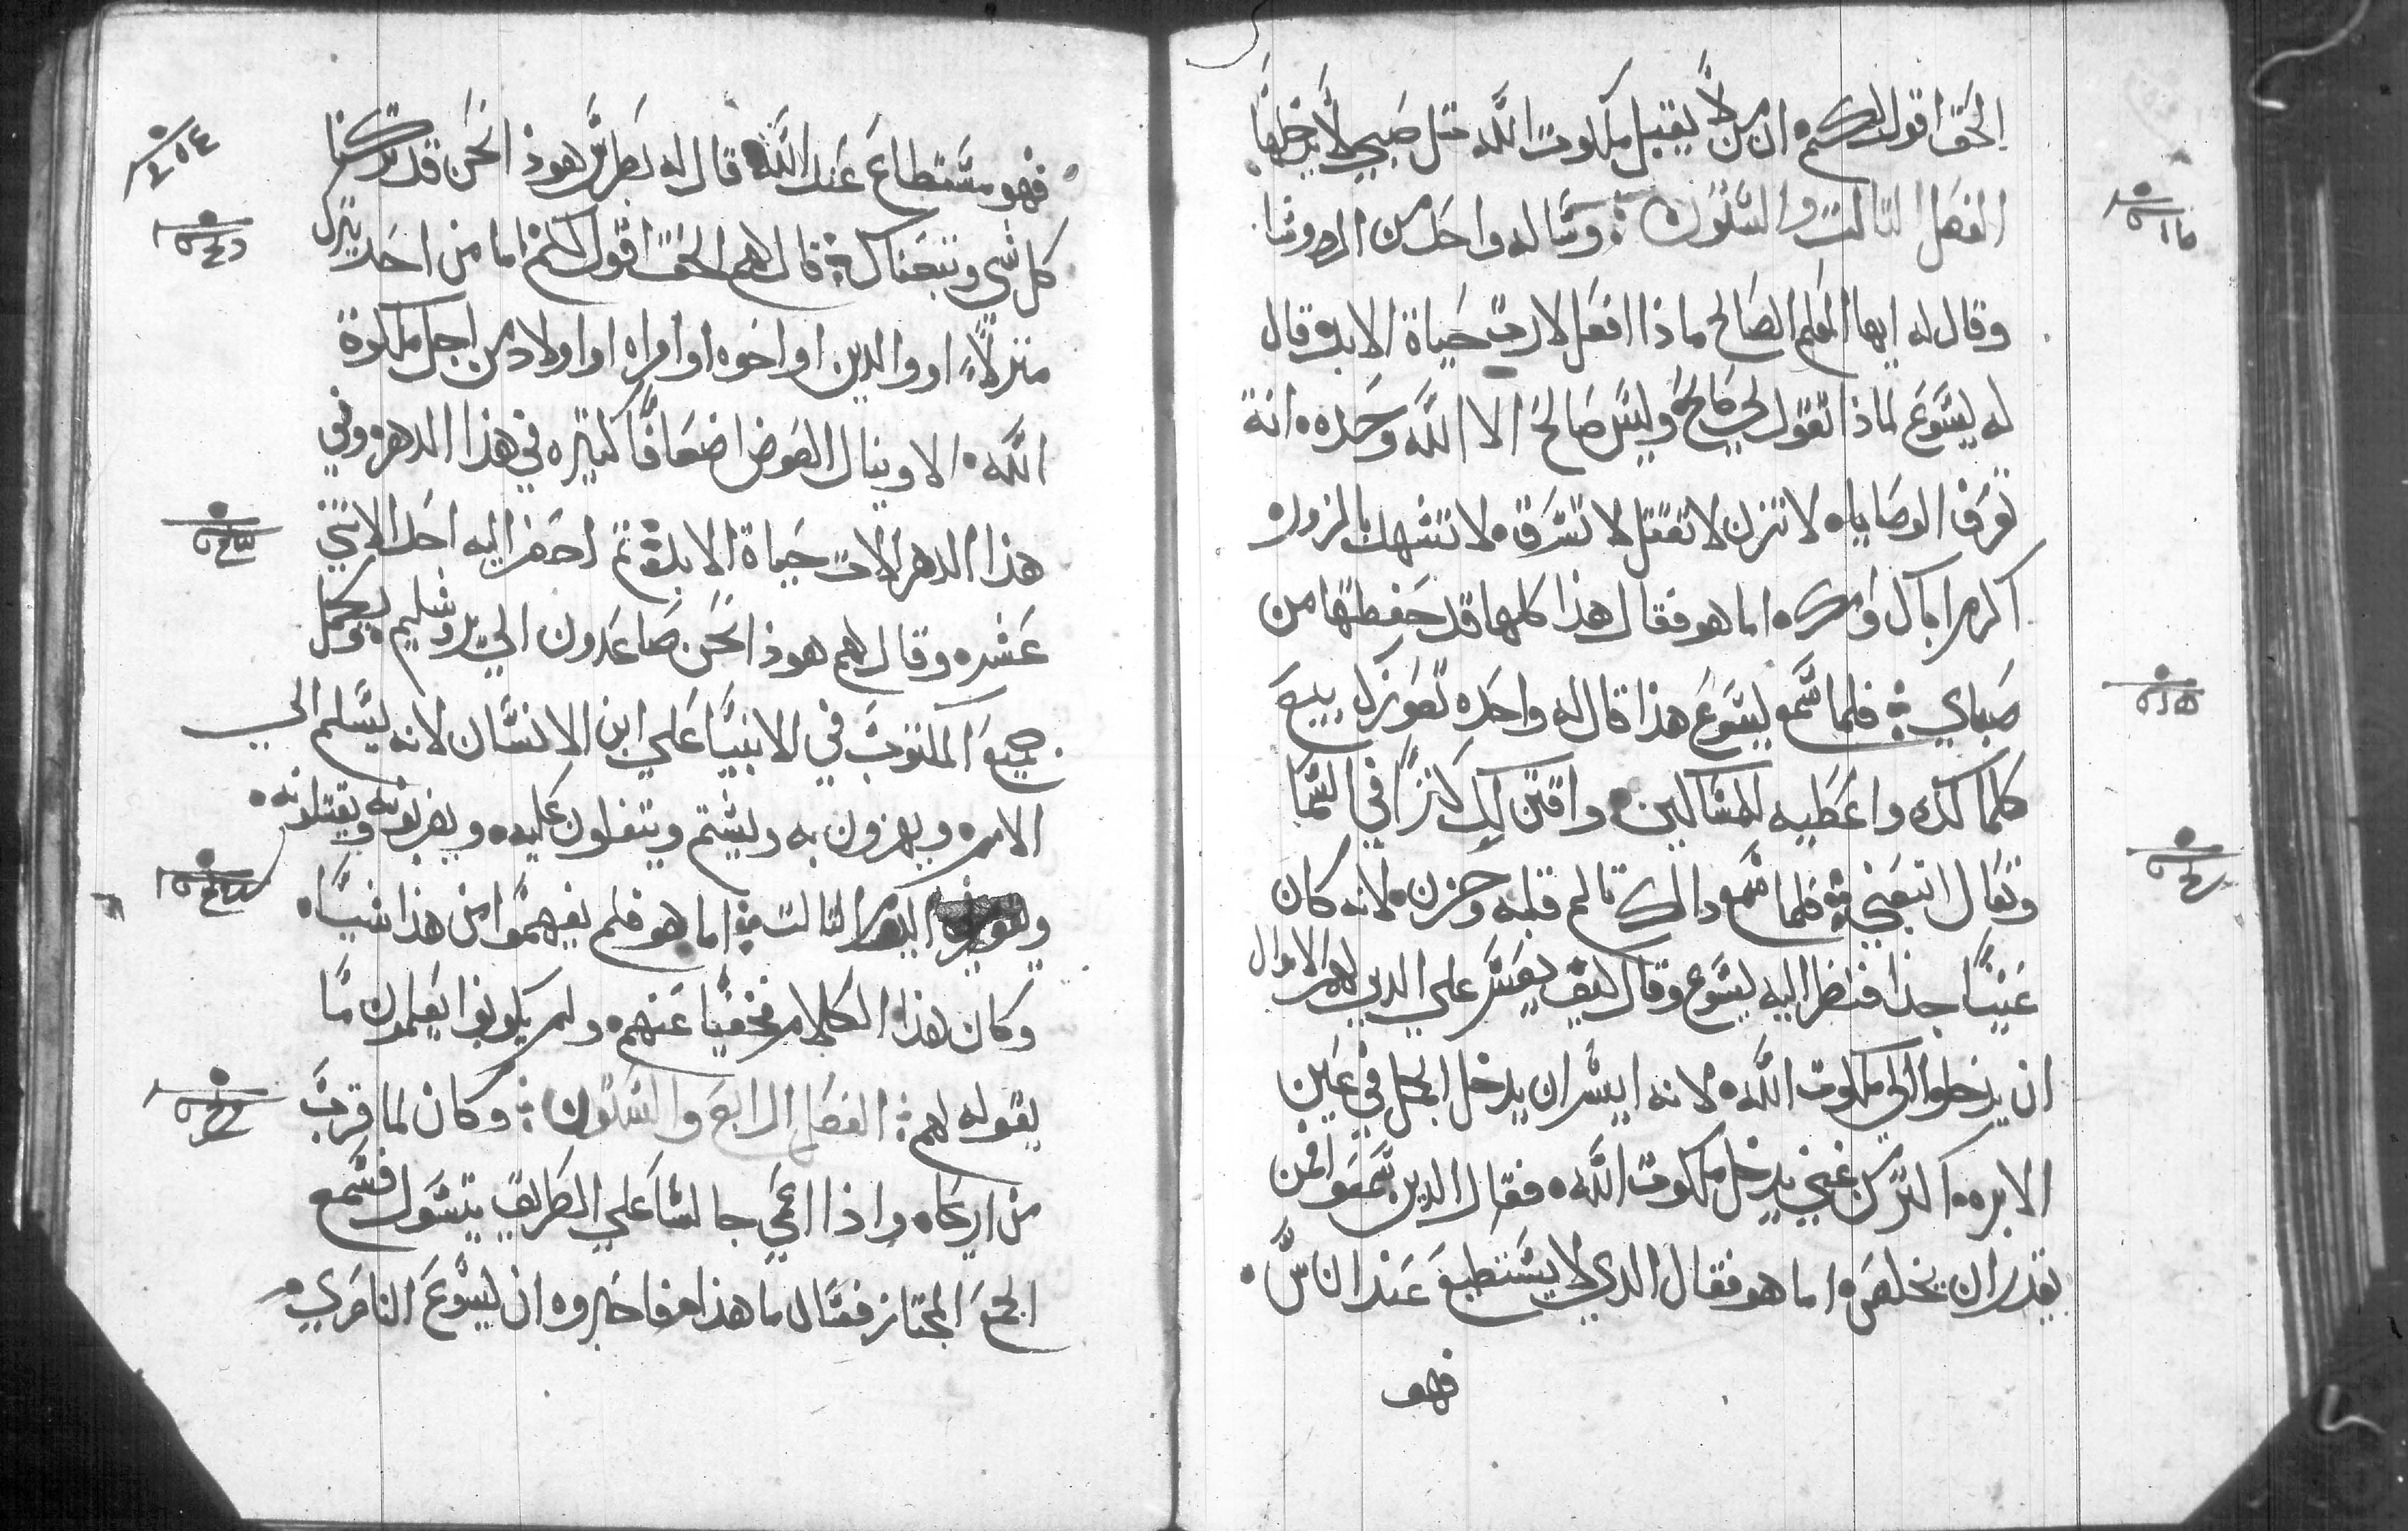 الحق اقول لكم ان من لا يقبل ملكوت الله متل صبي لا يدخلها
الفصل التالت والستون وساله واحد من الروسا
وقال له ايها المعلم الصالح ماذا افعل لارت حياة الابد وقال
له يسوع لماذا تقول لي صالح وليس صالح الا الله وحده انة
تعرف الوصايا لا تزن لا تقتل لا تسرق لا تشهد بالزور
اكرم اباك وامك اما هو فقال هذا كلها قد حفظتها من
صباي فلما سمع يسوع هذا قال له واحده تعوزك بيع
كلما لك واعطيه للمساكين واقتن لك كنزا في السما
وتعال اتبعني فلما سمع دالك تالم قلبه وحزن لانه كان
غنيا جدا فنظر اليه يسوع وقال كيف يعسر علي الدين لهم الاموال
ان يدخلوا الي ملكوت الله لانه ايسر ان يدخل الجمل في عين
الابره اكتر من غني يدخل ملكوت الله فقال الدين سمعوا فمن
يقدر ان يخلص اما هو فقال الدي لا يستطيع عند الناس
فهو
فهو مستطاع عند الله قال له بطرس هوذا نحن قد تركنا
كل شي وتبعناك قال لهم الحق اقول لكم ما من احد يترك
منزلا او والدين او اخوه او امراه او اولاد من اجل ملكوة
الله الا وينال العوض اضعافا كتيره في هذا الدهر وفي
هذا الدهر الات حياة الابد تم احضر اليه احد الاتني
عشره وقال لهم هوذا نحن صاعدون الي يروشليم ويكمل
جميع المكتوب في الانبيا علي ابن الانسان لانه يسلم الي
الامم ويهزون به ويشتم ويتفلون عليه ويضربونه ويقتلونه
ويقوم في اليوم التالت اما هو فلم يفهموا من هذا شيا
وكان هذا الكلام مخفيا عنهم ولم يكونوا يعلمون ما
يقوله لهم الفصل الرابع والستون وكان لما قرب
من اريحاه واذا اعمي جالسا علي الطريق يتسول فسمع
الجمع المجتاز فسال ما هذا فاخبروه ان يسوع الناصري